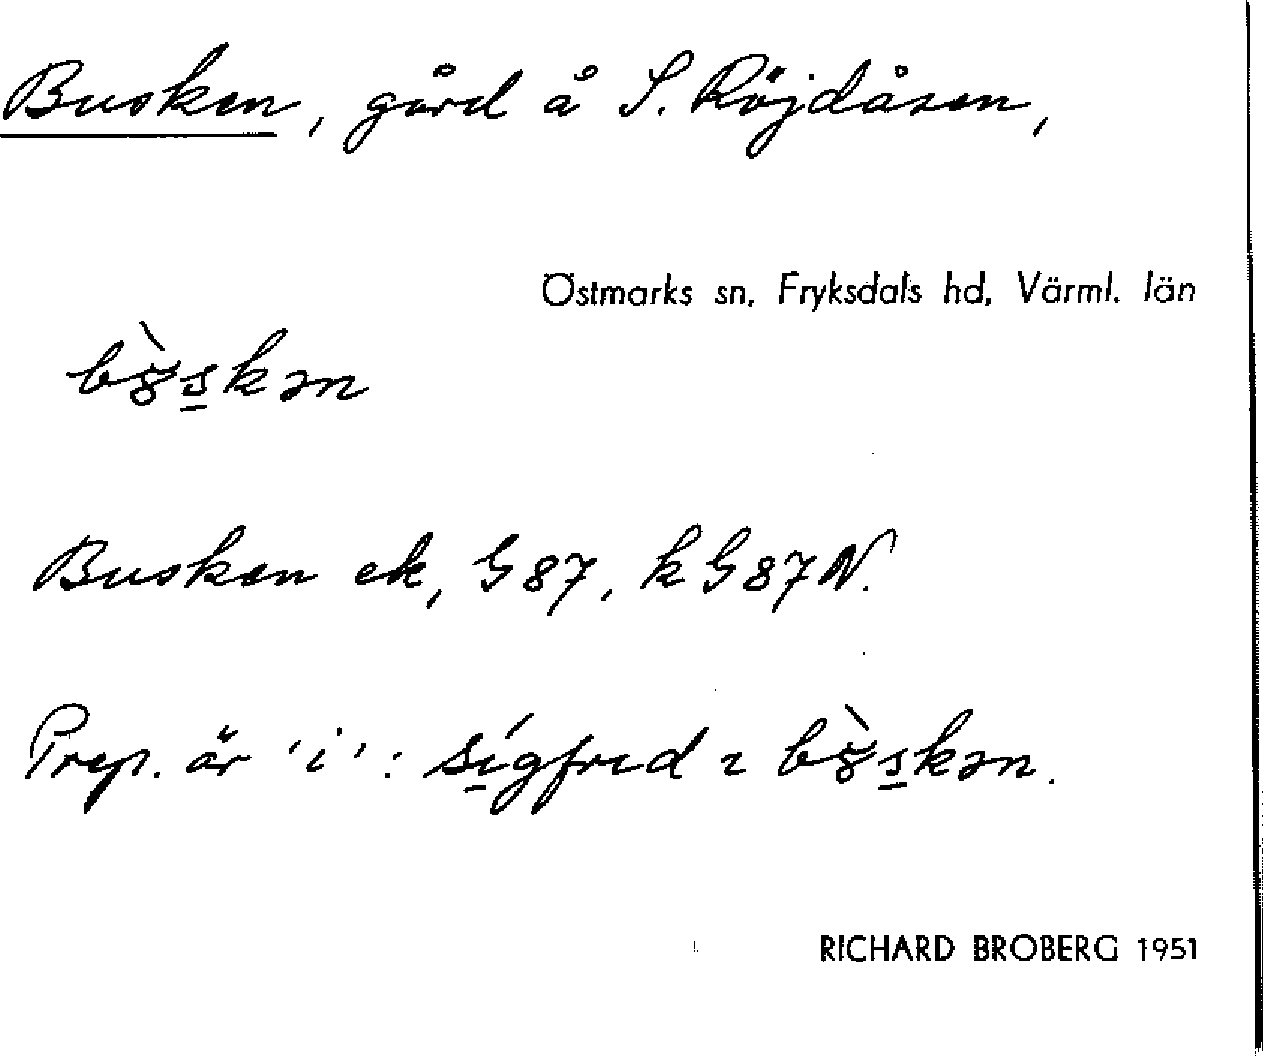 Busken, gård å S. Röjdåsen,
Östmarks sn, Fryksdals hd, Värml. län
Busken ek, G 87, k G 87 N.
Prep. är 'i':
RICHARD BROBERG 1951